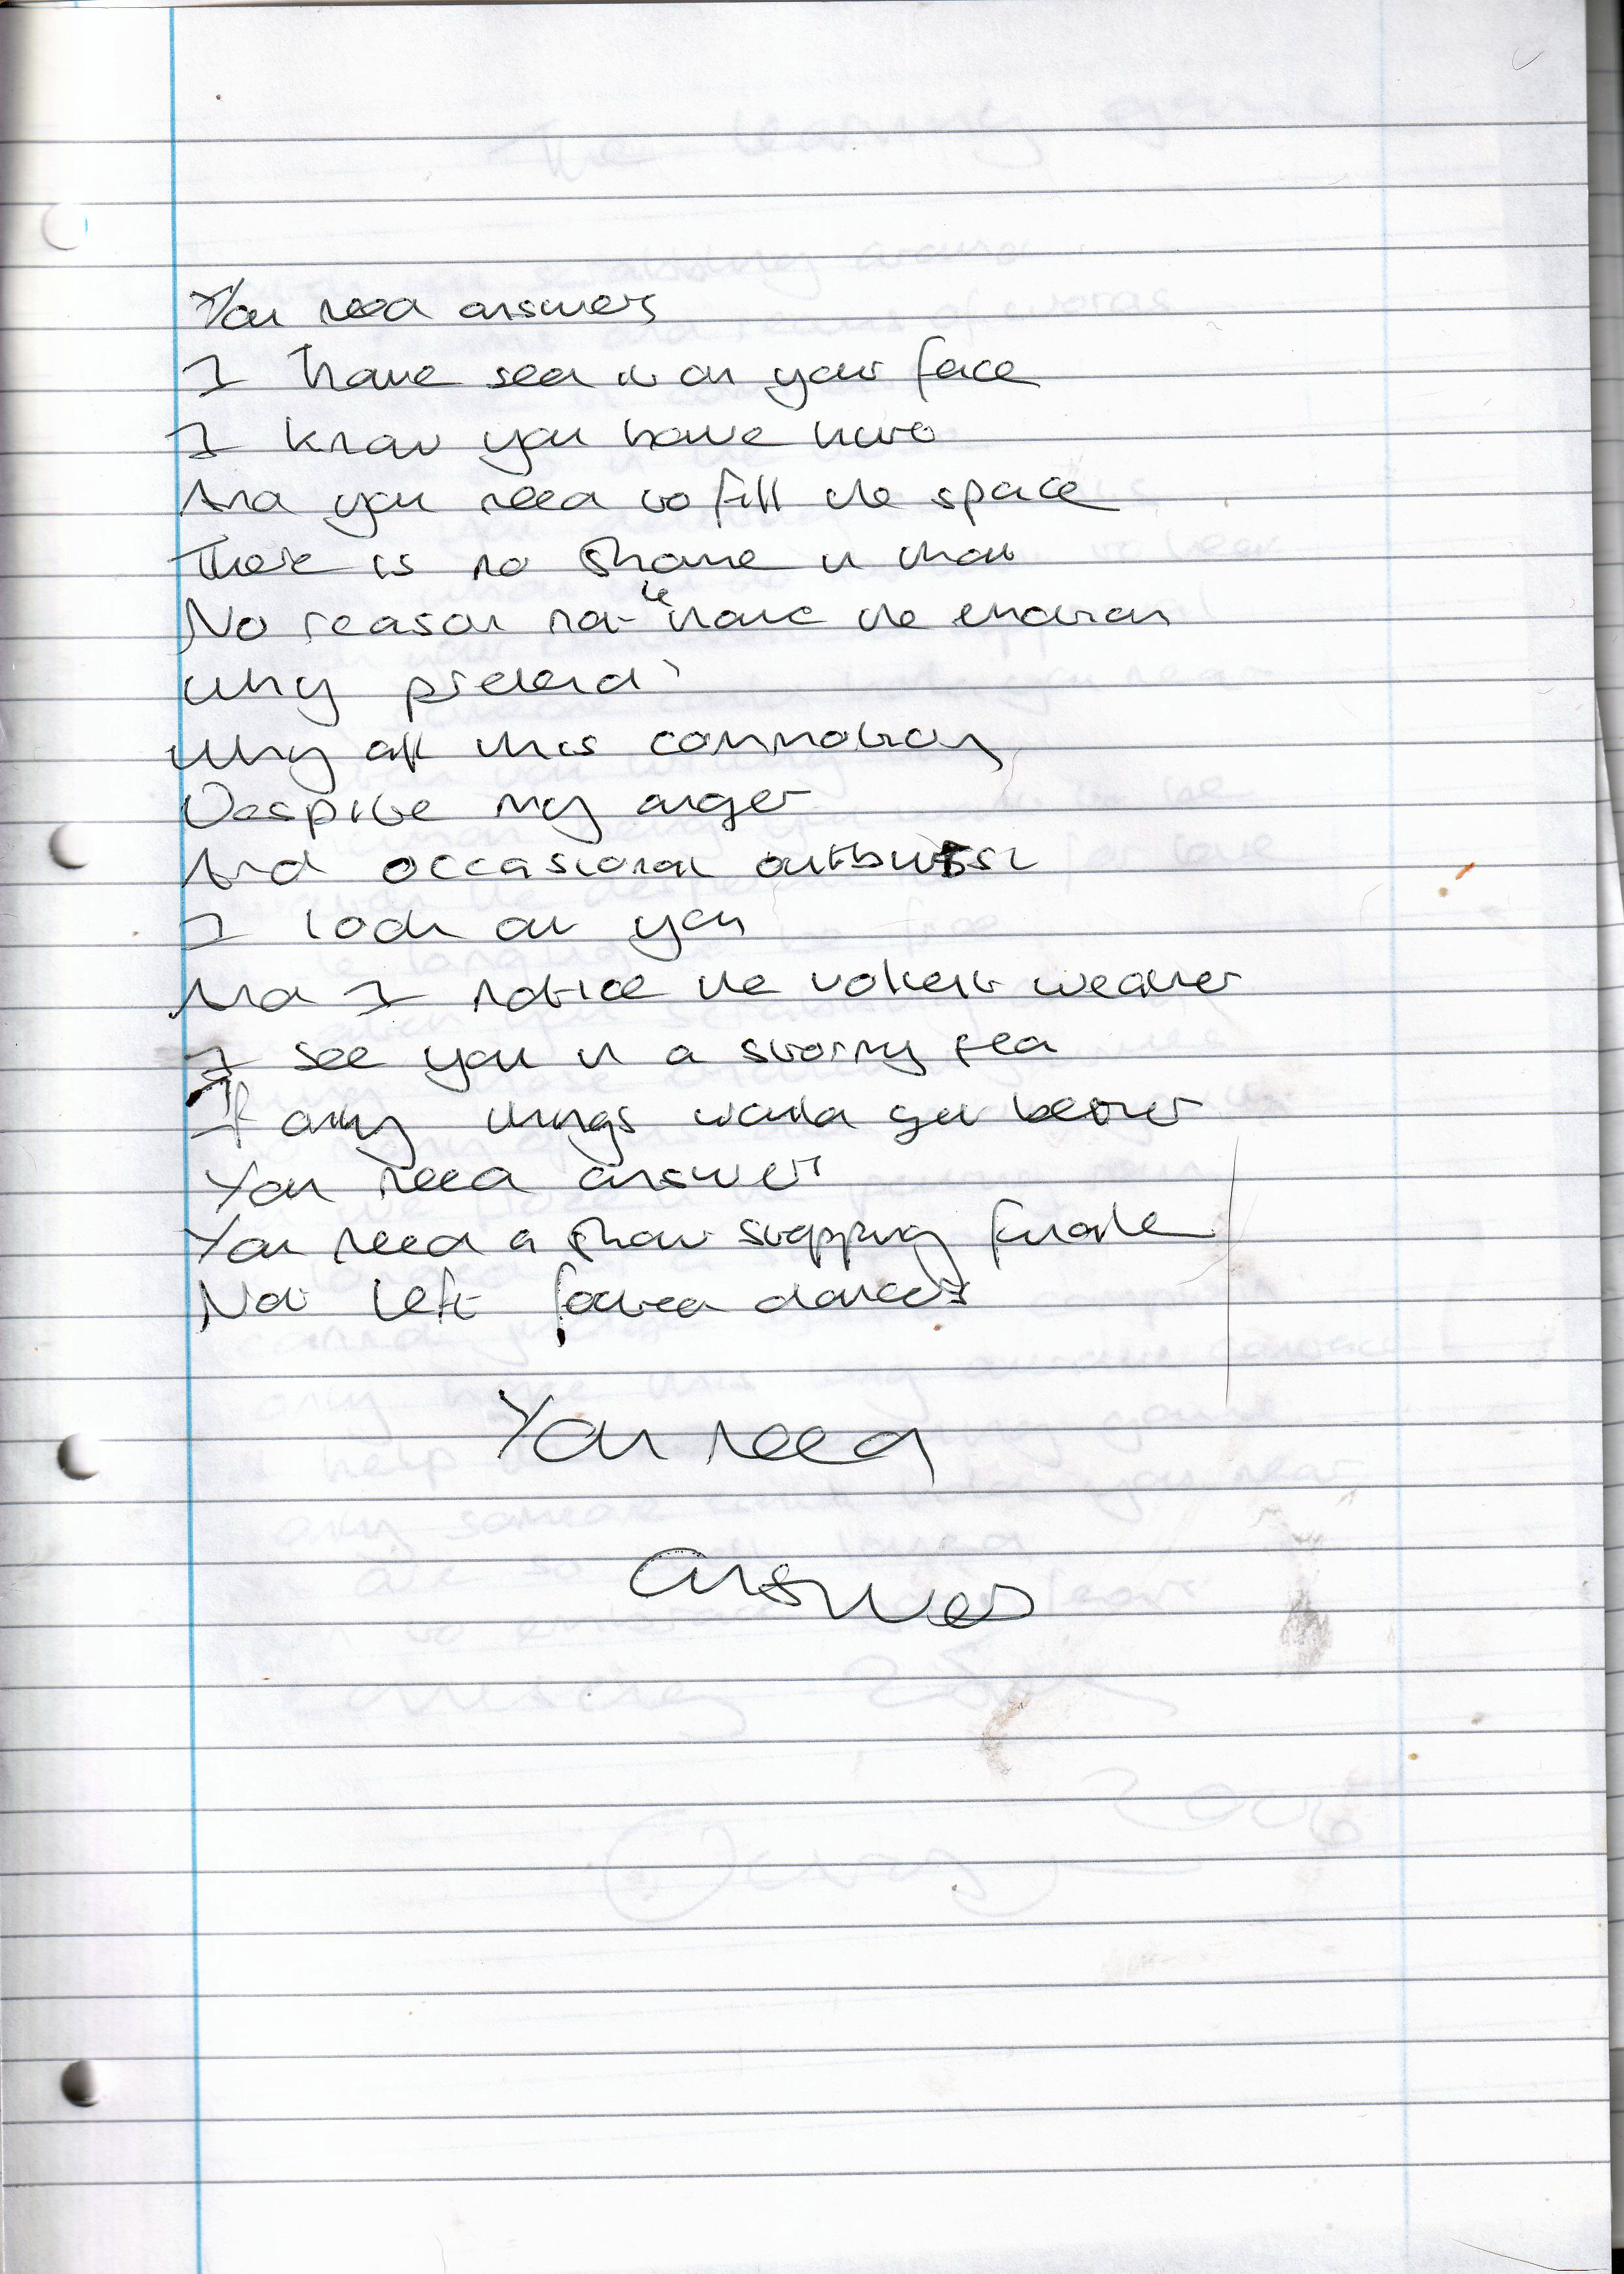 You need answers
I have seen it on your face
I know you have hurt
And you need to fill the space
There is no shame in that
No reason not to have the emotion
Why pretend?
Why all this commotion
Despite my anger
And occasional outburst
I look at you
And I notice the violent weather
I see you in a stormy sea
If only things would get better
You need answers
You need a show stopping finale
Not left footed dancers
You need
answers